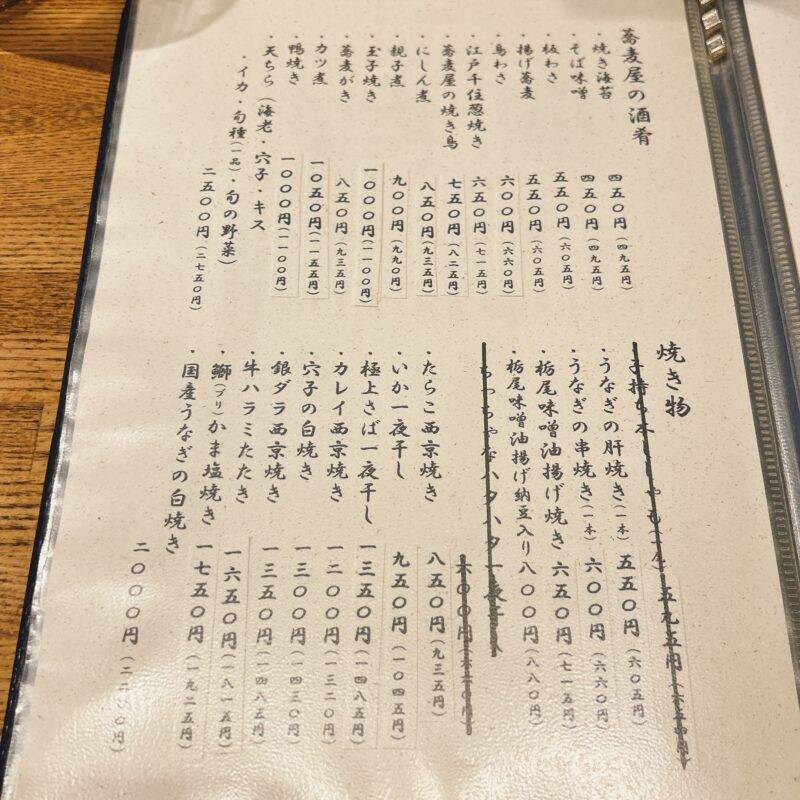 蕎麦屋の酒肴
・焼き海苔 四五〇円(四九五円)
・そば味噌 四五〇円(四九五円)
・板わさ 五五〇円(六〇五円)
・揚げ蕎麦 五五〇円(六〇五円)
・鳥わさ 六〇〇円(六六〇円)
・江戸千住葱焼き 六五〇円(七一五円)
・蕎麦屋の焼き鳥 七五〇円(八二五円)
・にしん煮 八五〇円(九三五円)
・親子煮 九〇〇円(九九〇円)
・玉子焼き 一〇〇〇円(一一〇〇円)
・蕎麦がき 八五〇円(九三五円)
・カツ煮 一〇五〇円(一一五五円)
・鴨焼き 一〇〇〇円(一一〇〇円)
・天ちら(海老・穴子・キス
・イカ・旬種(一品)・旬の野菜)
二五〇〇円(二七五〇円)
焼き物
・子持ち本ししゃも 五九五円
・うなぎの肝焼き(一本) 五五〇円(六〇五円)
・うなぎの串焼き(一本) 六〇〇円(六六〇円)
・栃尾味噌油揚げ焼き 六五〇円(七一五円)
・栃尾味噌油揚げ納豆入り 八〇〇円(八八〇円)
・ちっちゃなハタハタ一夜干し 六〇〇円
・たらこ西京焼き 八五〇円(九三五円)
・いか一夜干し 九五〇円(一〇四五円)
・極上さば一夜干し 一三五〇円(一四八五円)
・カレイ西京焼き 一二〇〇円(一三二〇円)
・穴子の白焼き 一三〇〇円(一四三〇円)
・銀ダラ西京焼き 一三五〇円(一四八五円)
・牛ハラミたたき 一六五〇円(一八一五円)
・鰤(ブリ)かま塩焼き 一七五〇円(一九二五円)
・国産うなぎの白焼き 二〇〇〇円(二二〇〇円)